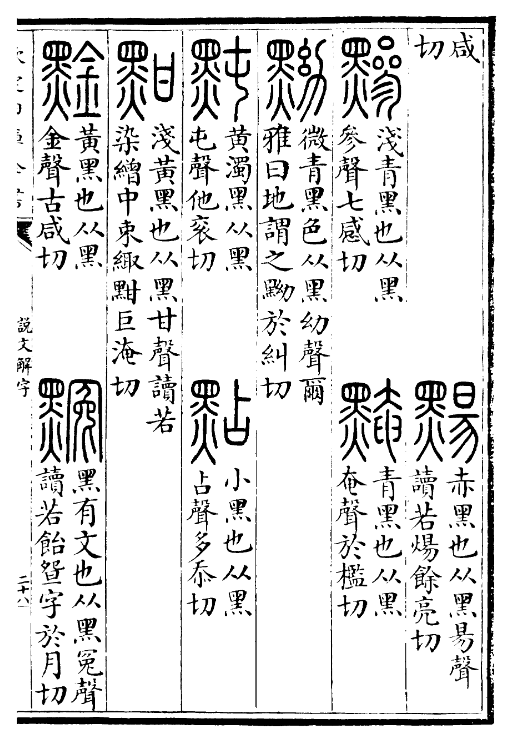 咸
切
赤黑也从黑易聲
讀若煬餘亮切
黲
淺青黑也从黑
參聲七感切
黤
青黑也从黑
奄聲於檻切
黝
微青黑色从黑幼聲爾
雅曰地謂之黝於糾切
黗
黃濁黑从黑
屯聲他衮切
點
小黑也从黑
占聲多忝切
黚
淺黃黑也从黑甘聲讀若
染繒中束緅黚巨淹切
黃黑也从黑
金聲古咸切
黑有文也从黑冤聲
讀若飴𧯡字於月切
欽定四庫全書
說文解字
二十八